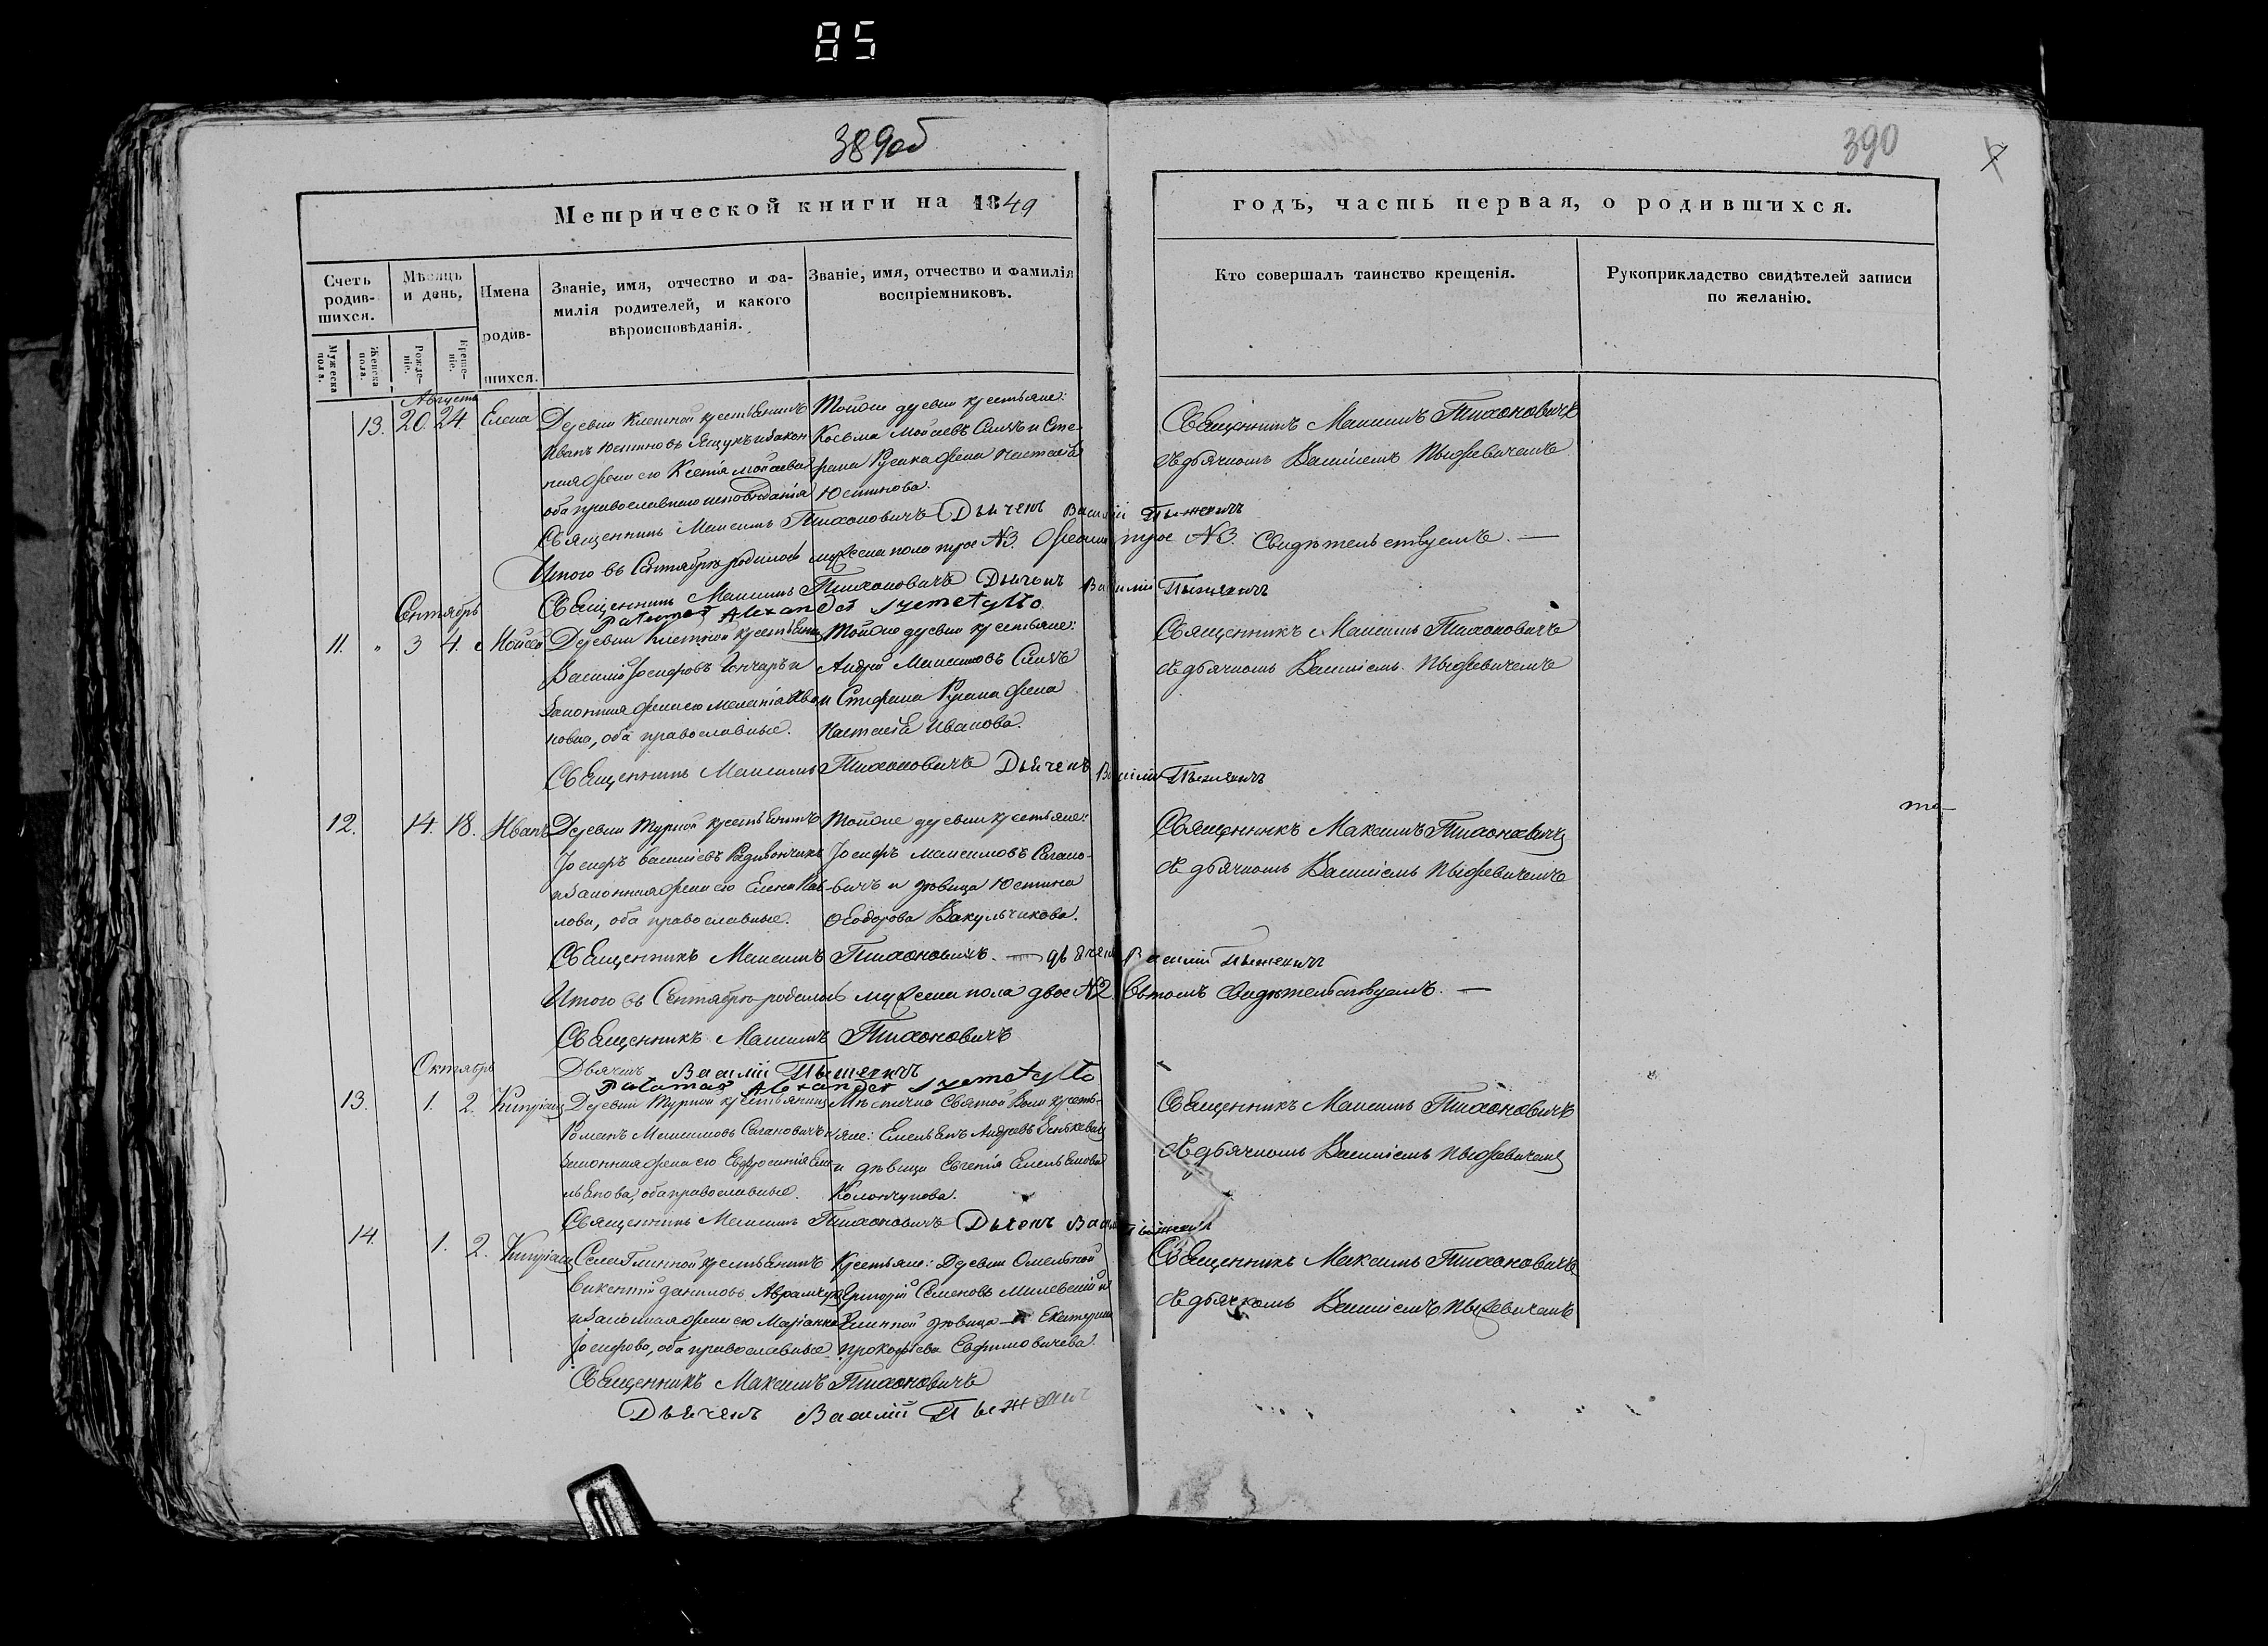 85
389об
390
Метрической книги на 1849
годъ, часть первая, о родившихся.
Счетъ родив-шихся.
Мѣсяцъ и день.
Имена родив-шихся.
Званіе, имя, отчество и фа-
милія родителей, и какого
вѣроисповѣданія.
Званіе, имя, отчество и фамилія
воспріемниковъ.
Кто совершалъ таинство крещенія.
Рукоприкладство свидѣтелей записи
по желанію.
Мужеска пола.
Женска пола.
Рожде-ніе.
Креще-ніе.
Августъ
13. 20. 24. Елена
Деревни Клетной крестьянинъ
Иванъ Юстиновъ Ящукъ и закон
ная жена его Ксенія Мойсеева
оба православнаго исповѣданія
Тойже деревни крестьяне:
Косьма Мойсеевъ и Сте
фана жена Настасія
Юстинова.
Священникъ Максимъ Тихоновичъ
съ дьячкомъ Василіемъ Пыжевичемъ
Священникъ Максимъ Тихоновичъ Дьячекъ Василій Пыжевичъ
Итого въ Сентябрѣ родилось мужеска пола трое №3. Женска трое №3. Свидѣтельствуемъ. —
Священникъ Максимъ Тихоновичъ Дьячекъ Василій Пыжевичъ
Patamar Alexander Szemetyllo
Сентябрь
11. " 3 4. Мойсей
Деревни Клетной крестьянинъ
Василій Іосифовъ Гончаръ и
законная жена его Меланія Ива
новна, оба православные.
Тойже деревни крестьяне:
Андрей Максимовъ
и Стефана жена
Настасія Иванова.
Священникъ Максимъ Тихоновичъ
съ дьячкомъ Василіемъ Пыжевичемъ
Священникъ Максимъ Тихоновичъ Дьячекъ Василій Пыжевичъ
12. 14. 18. Иванъ
Деревни Турной крестьянинъ
Іосифъ Василіевъ Радивончикъ
и законная жена его Елена Пав-
лова, оба православные.
Тойже деревни крестьяне:
Іосифъ Максимовъ Сагано-
вичъ и дѣвица Юстина
Ѳеодорова Вакульчикова.
Священникъ Максимъ Тихоновичъ
съ дьячкомъ Василіемъ Пыжевичемъ
Священникъ Максимъ Тихоновичъ. — дьячекъ Василій Пыжевичъ
Итого въ Сентябрѣ родилось мужеска пола двое №2. Въ томъ свидѣтельствуемъ. —
Священникъ Максимъ Тихоновичъ
Дьячекъ Василій Пыжевичъ
Patamar Alexander Szemetyllo
Октябрь
13. 1. 2. Кипріянъ
Деревни Турной крестьянинъ
Романъ Максимовъ Сагановичъ и
законная жена его Евфросинія Еме
льянова, оба православные.
Мѣстечка Святой Воли кресть-
яне: Емельянъ Андреевъ
и дѣвица Евгенія Емельянова
Колончукова.
Священникъ Максимъ Тихоновичъ
съ дьячкомъ Василіемъ Пыжевичемъ
Священникъ Максимъ Тихоновичъ Дьячекъ Василій Пыжевичъ
14. 1. 2. Кипріянъ
Села Глинной крестьянинъ
Викентій Даниловъ Аврамчукъ
и законная жена его Маріанна
Іосифова, оба православные
Крестьяне: Деревни Омельной
Григорій Семеновъ Милевскій и
Глинной дѣвица Екатерина
Прокофіева Евфимовичева.
Священникъ Максимъ Тихоновичъ
съ дьячкомъ Василіемъ Пыжевичемъ
Священникъ Максимъ Тихоновичъ
Дьячекъ Василій Пыжевичъ